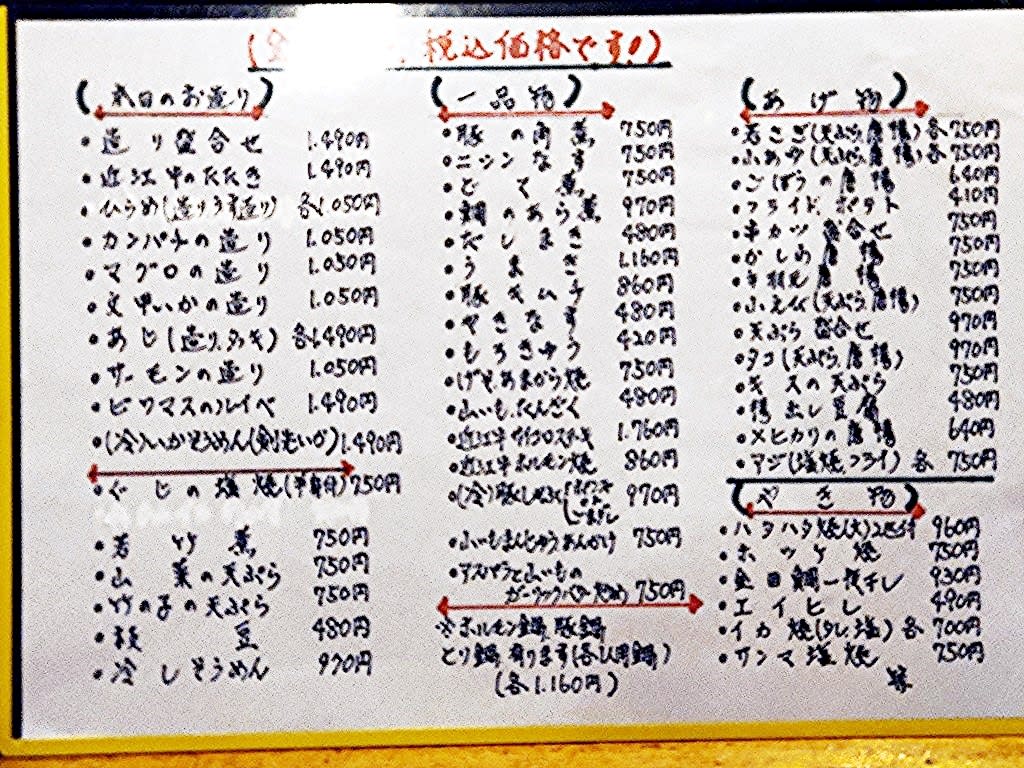 税込価格です!)
(本日のお造り)
・造り盛合せ 1.490円
・近江牛のたたき 1.490円
・ひらめ(造り,うす造り) 各1.050円
・カンパチの造り 1.050円
・マグロの造り 1.050円
・文甲いかの造り 1.050円
・あじ(造り,タタキ) 各1.490円
・サーモンの造り 1.050円
・ビワマスのルイベ 1.490円
・(冷)いかそうめん(剣先いか) 1.490円
・ぐじの塩焼(半身) 750円
・若竹煮 750円
・山菜の天ぷら 750円
・竹の子の天ぷら 750円
・枝豆 480円
・冷しそうめん 970円
(一品物)
・豚の角煮 750円
・ニシンなす 750円
・どて煮 750円
・鯛のあら煮 970円
・だしまき 480円
・うまき 1.160円
・豚キムチ 860円
・やきなす 480円
・もろきゅう 420円
・げそあまから焼 750円
・山いもたんざく 480円
・近江牛サイコロステーキ 1.760円
・近江牛ホルモン焼 860円
・(冷)豚しゃぶ 970円
・ふーまんじゅうあんかけ 750円
・アスパラと山いもの
ガーリックバター炒め 750円
※ホルモン鍋,豚鍋
とり鍋有ります(各1人用鍋)
(各1.160円)
(あげ物)
・若とり(天ぷら,唐揚) 各750円
・ふぐ(天ぷら,唐揚) 各750円
・ごぼうの唐揚 640円
・フライドポテト 410円
・串カツ盛合せ 750円
・かしわ唐揚 750円
・手羽先唐揚 750円
(天ぷら,唐揚) 750円
・天ぷら盛合せ 970円
・タコ(天ぷら,唐揚) 970円
・キスの天ぷら 750円
・揚出し豆腐 480円
・メヒカリの唐揚 640円
・アジ(塩焼,フライ) 各750円
(やき物)
・ハタハタ焼(大)2匹付 960円
・ホッケ焼 750円
・金目鯛一夜干し 930円
・エイヒレ 490円
・イカ焼(タレ,塩) 各700円
・サンマ塩焼 750円
等